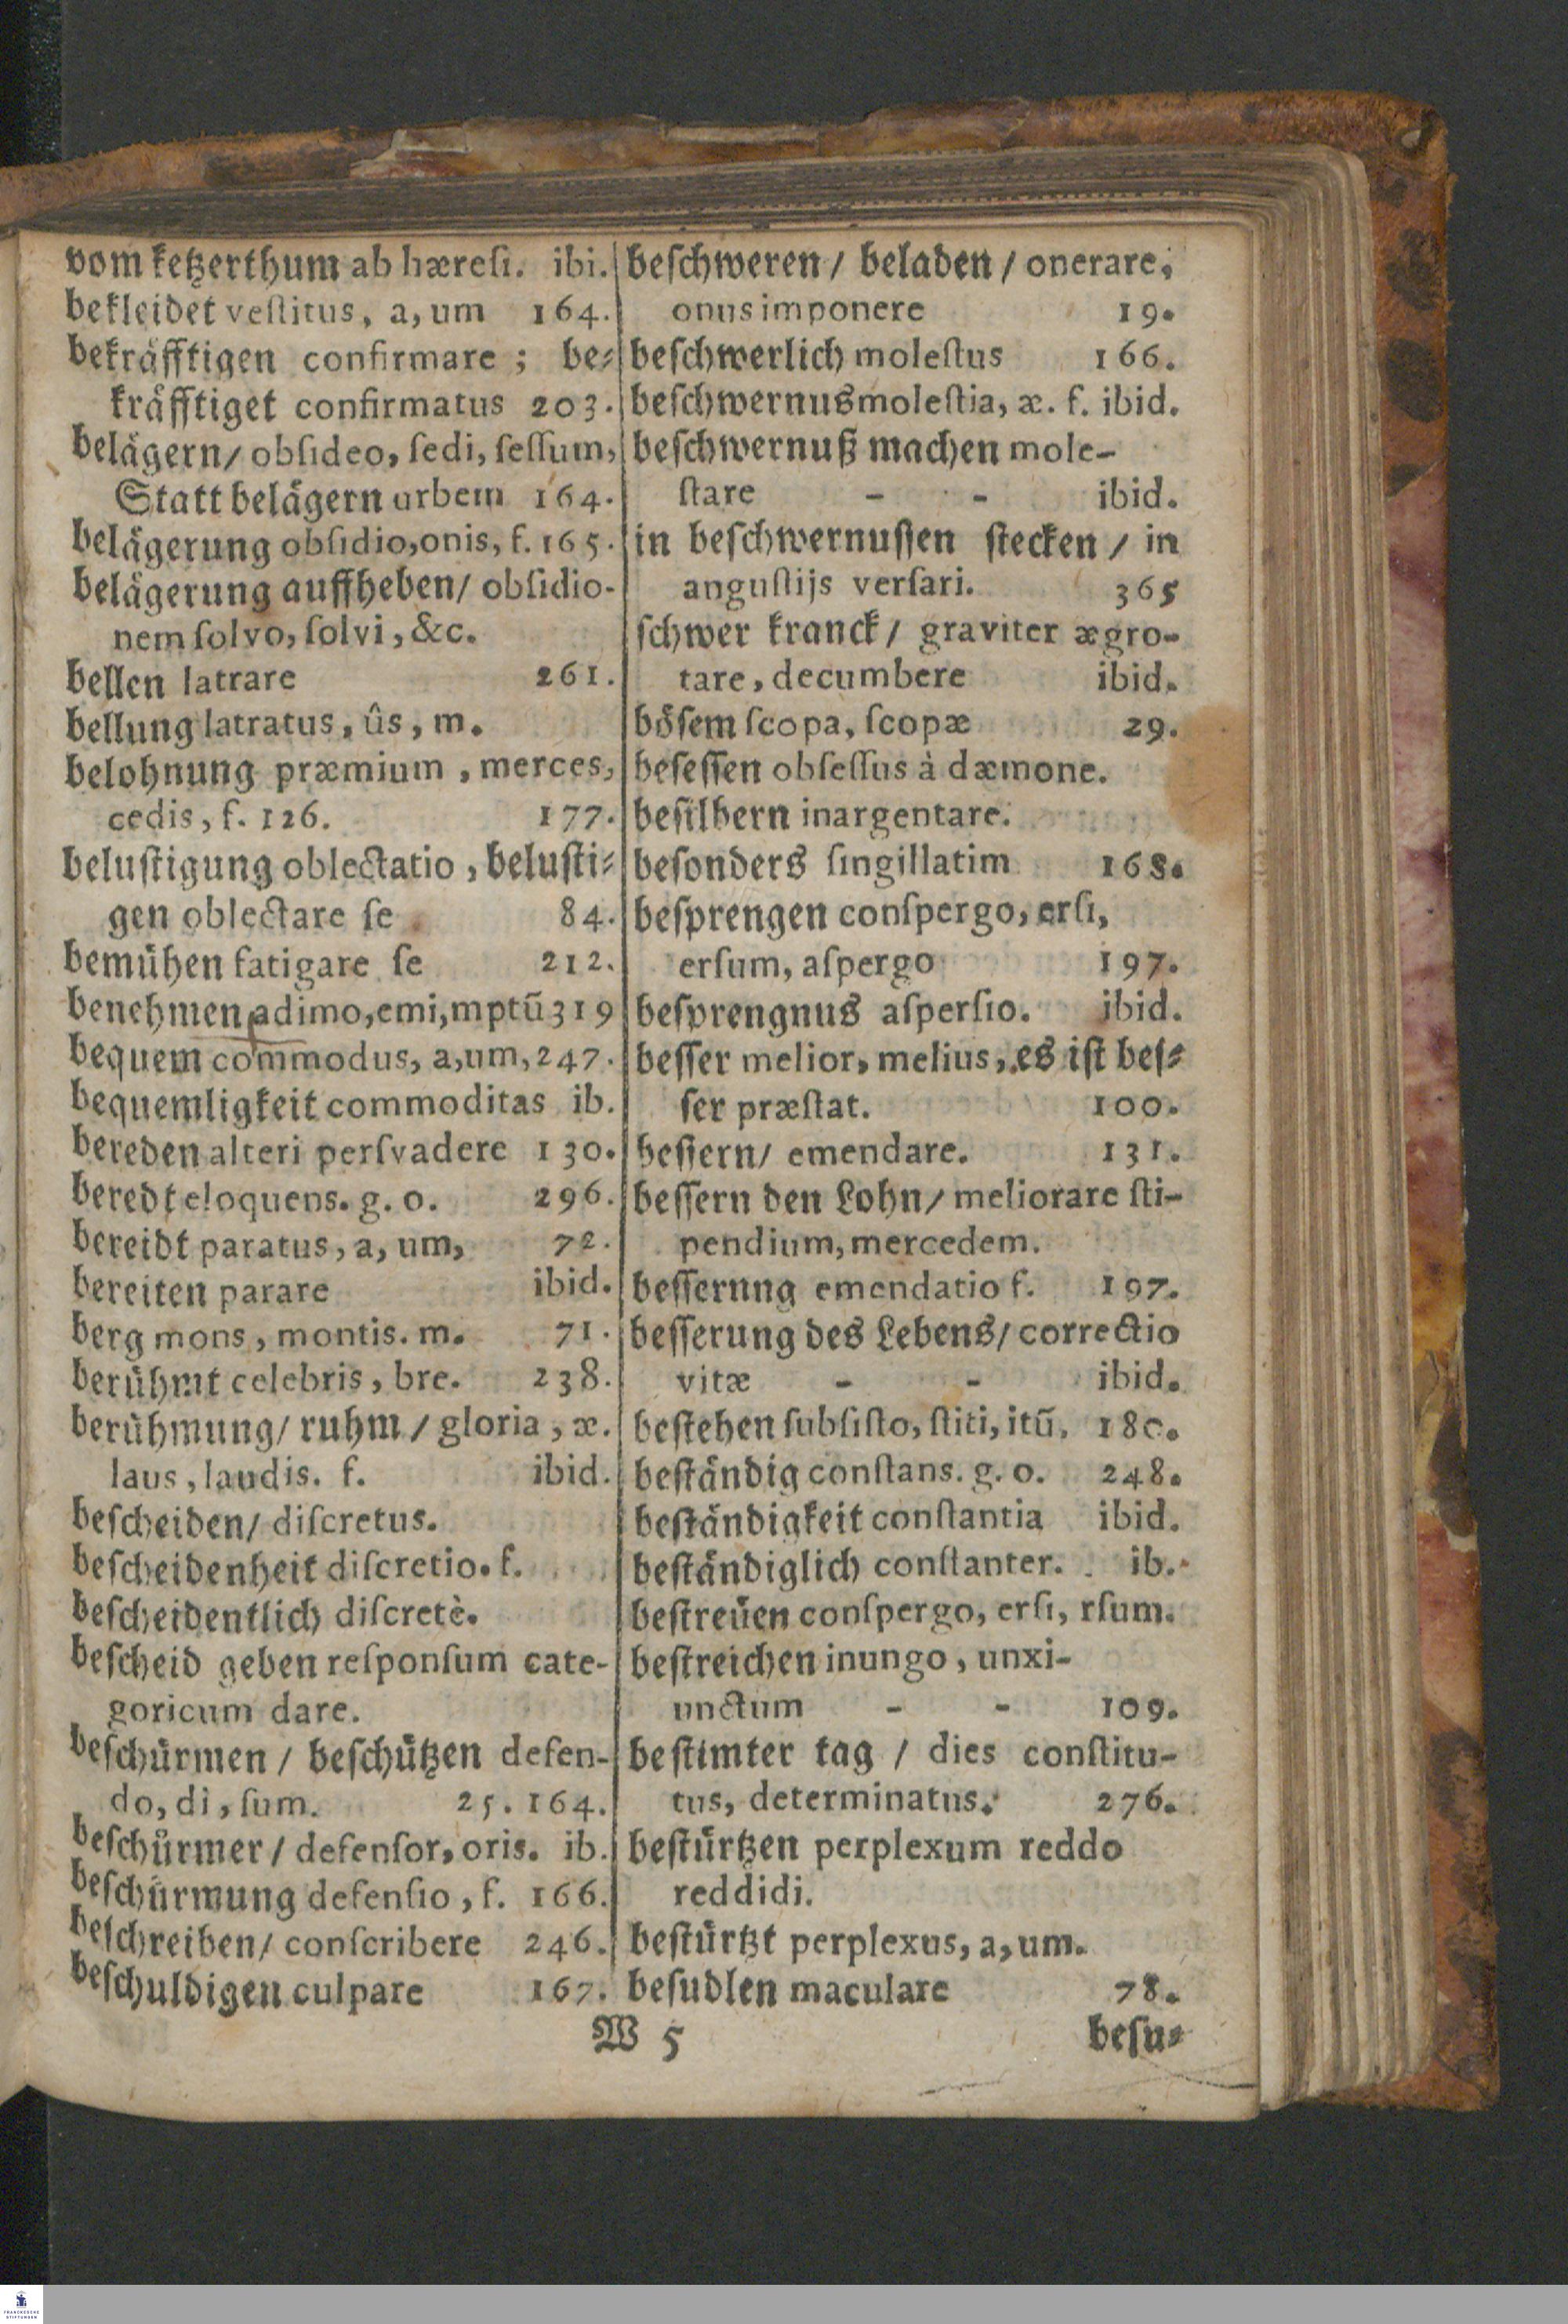 vom ketzerthum ab hæreſi. ibi.
bekleidet veſtitus, a, um 164.
bekräfftigen confirmare; be⸗
kräfftiget confirmatus 203.
belägern/ obſideo, ſedi, ſeſſum,
Statt belägern urbem 164.
belägerung obſidio, onis, f. 165.
belägerung auffheben/ obſidio-
nem ſolvo, ſolvi, &c.
bellen latrare 261.
bellung latratus, ûs, m.
belohnung præmium, merces,
cedis, f. 126. 177.
beluſtigung oblectatio, beluſti⸗
gen oblectare ſe 84.
bemühen fatigare ſe 212.
benehmen adimo, emi, mptũ 319
bequem commodus, a, um, 247.
bequemligkeit commoditas ib.
bereden alteri perſvadere 130.
beredt eloquens. g. o. 296.
bereidt paratus, a, um, 72.
bereiten parare ibid.
berg mons, montis. m. 71.
berühmt celebris, bre. 238.
berühmung/ ruhm/ gloria, æ.
laus, laudis. f. ibid.
beſcheiden/ diſcretus.
beſcheidenheit diſcretio. f.
beſcheidentlich diſcretè.
beſcheid geben reſponſum cate-
goricum dare.
beſchürmen/ beſchützen defen-
do, di, ſum. 25. 164.
beſchürmer/ defenſor, oris. ib.
beſchürmung defenſio, f. 166.
beſchreiben/ conſcribere 246.
beſchuldigen culpare 167.
beſchweren/ beladen/ onerare,
onus imponere 19.
beſchwerlich moleſtus 166.
beſchwernus moleſtia, æ. f. ibid.
beſchwernuß machen mole-
ſtare - - ibid.
in beſchwernuſſen ſtecken/ in
anguſtijs verſari. 365
ſchwer kranck/ graviter ægro-
tare, decumbere ibid.
böſem ſcopa, ſcopæ 29.
beſeſſen obſeſſus à dæmone.
beſilbern inargentare.
beſonders ſingillatim 168.
beſprengen conſpergo, erſi,
erſum, aſpergo 197.
beſprengnus aſperſio. ibid.
beſſer melior, melius, es iſt beſ⸗
ſer præſtat. 100.
beſſern/ emendare. 131.
beſſern den Lohn/ meliorare ſti-
pendium, mercedem.
beſſernng emendatio f. 197.
beſſerung des Lebens/ correctio
vitæ - - ibid.
beſtehen ſubſiſto, ſtiti, itũ, 180.
beſtändig conſtans. g. o. 248.
beſtändigkeit conſtantia ibid.
beſtändiglich conſtanter. ib.
beſtreüen conſpergo, erſi, rſum.
beſtreichen inungo, unxi-
unctum - - 109.
beſtimter tag/ dies conſtitu-
tus, determinatus. 276.
beſtürtzen perplexum reddo
reddidi.
beſtürtzt perplexus, a, um.
beſudlen maculare 78.
W 5 beſu⸗
FRANCKESCHE
STIFTUNGEN